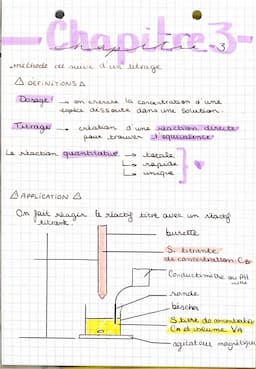 Chapitre 3
chapitre 3
méthode de suivi d'un titrage
△ DEFINITIONS △
Dosage → on cherche la concentration d'une
espèce dissoute dans une solution.
Titrage → création d'une réaction directe
pour trouver l'équivalence
La réaction quantitative → totale
→ rapide
→ unique
△ APPLICATION △
On fait réagir le réactif titré avec un réactif
titrant.
burette
S. titrante
de concentration CB
Conductimètre ou PH
mètre
sonde
bécher
S titrée de concentration
CA et volume VA
agitateur magnétique